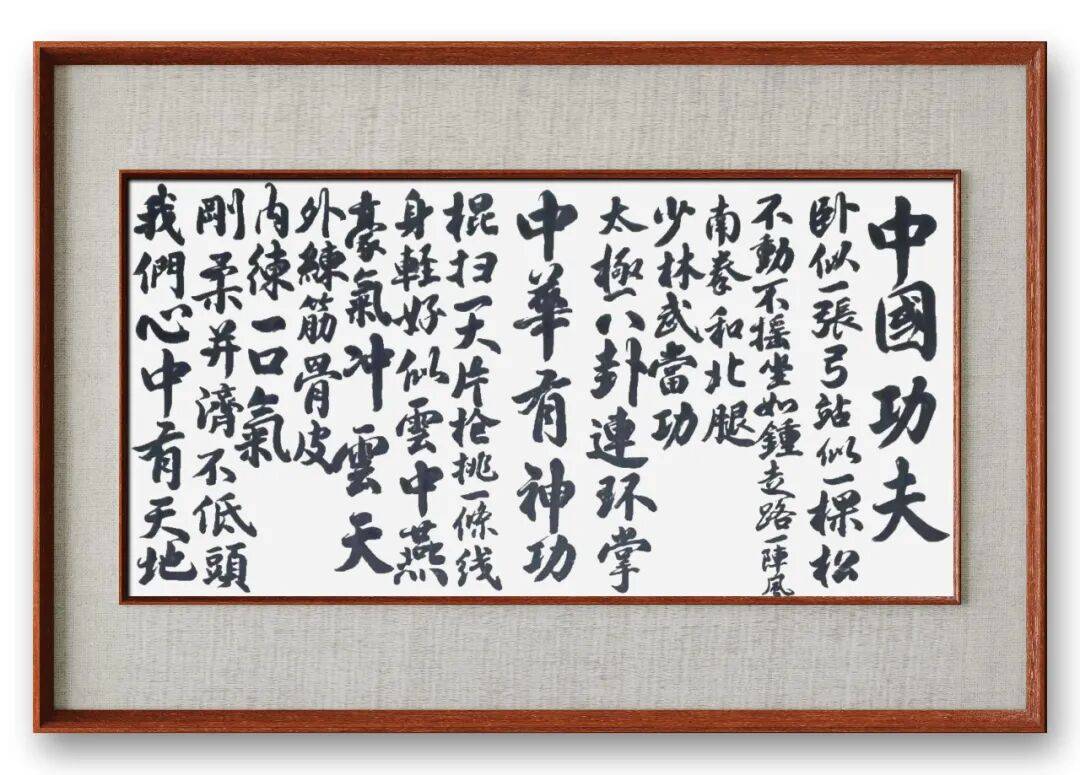 中國功夫
卧似一張弓站似一棵松
不動不摇坐如鍾走路一陣風
南拳和北腿
少林武當功
太極八卦連环掌
中華有神功
棍扫一大片枪挑一條线
身軽好似雲中燕
豪氣冲雲天
外練筋骨皮
内練一口氣
剛柔并濟不低頭
我們心中有天地